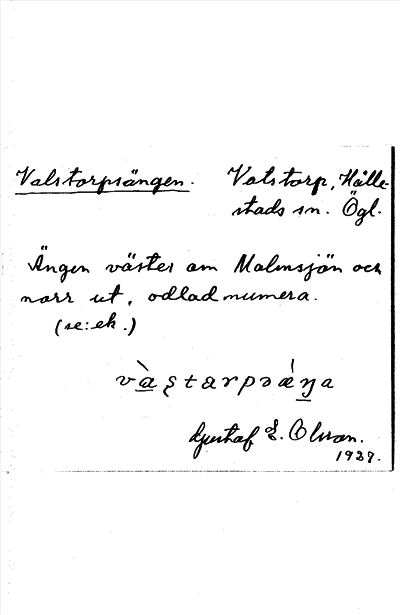 Valstorpsängen. Valstorp, Hälle-
stads sn. Ögl.
Ängen väster om Malmsjön och
norr ut, odlad numera.
(se: ek.)
Gustaf E. Olsson.
1937.